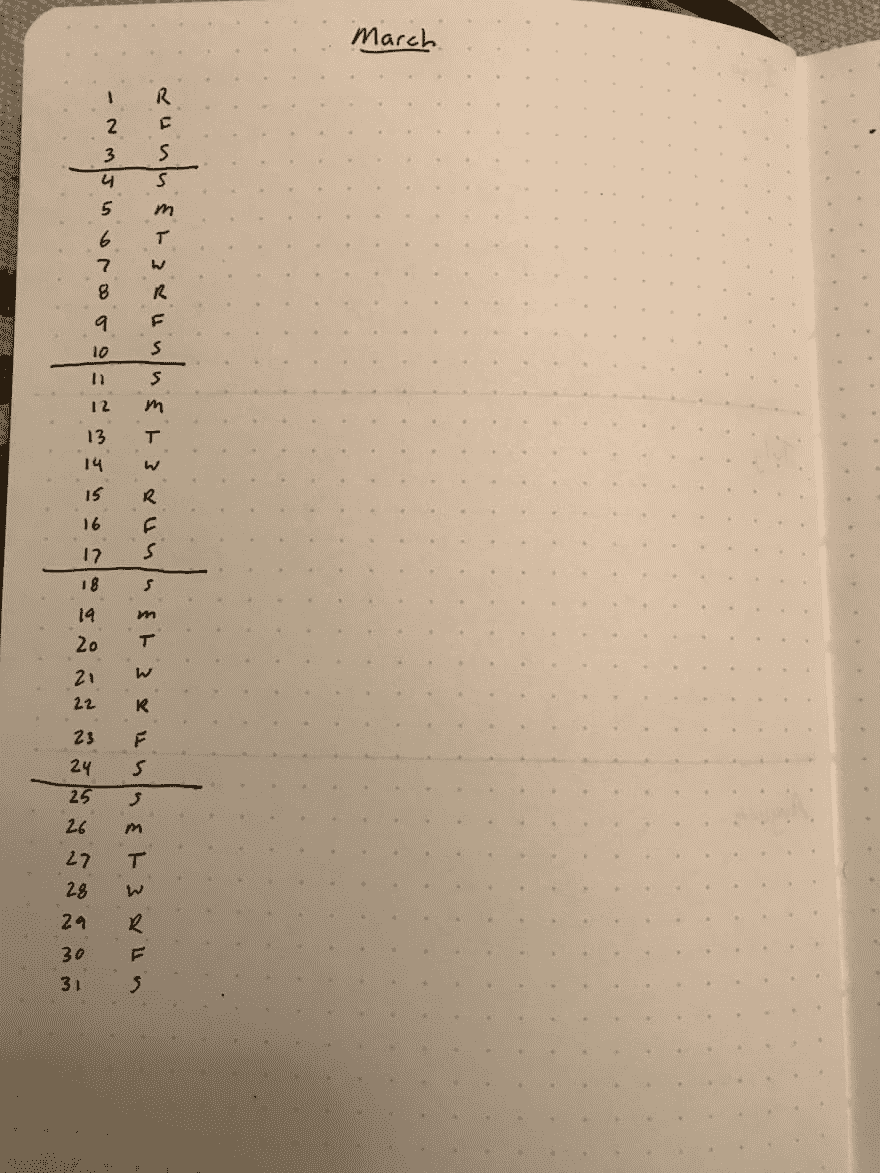 March
1 R
2 F
3 S
4 S
5 M
6 T
7 W
8 R
9 F
10 S
11 S
12 M
13 T
14 W
15 R
16 F
17 S
18 S
19 M
20 T
21 W
22 R
23 F
24 S
25 S
26 M
27 T
28 W
29 R
30 F
31 S